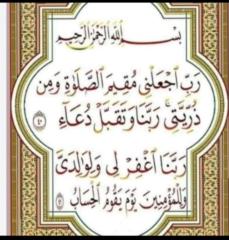 بِسْمِ اللَّهِ الرَّحْمَٰنِ الرَّحِيمِ
رَبِّ اجْعَلْنِي مُقِيمَ الصَّلَوٰةِ وَمِن
ذُرِّيَّتِي رَبَّنَا وَتَقَبَّلْ دُعَاءِ ٤٠
رَبَّنَا اغْفِرْ لِي وَلِوَالِدَيَّ
وَلِلْمُؤْمِنِينَ يَوْمَ يَقُومُ الْحِسَابُ